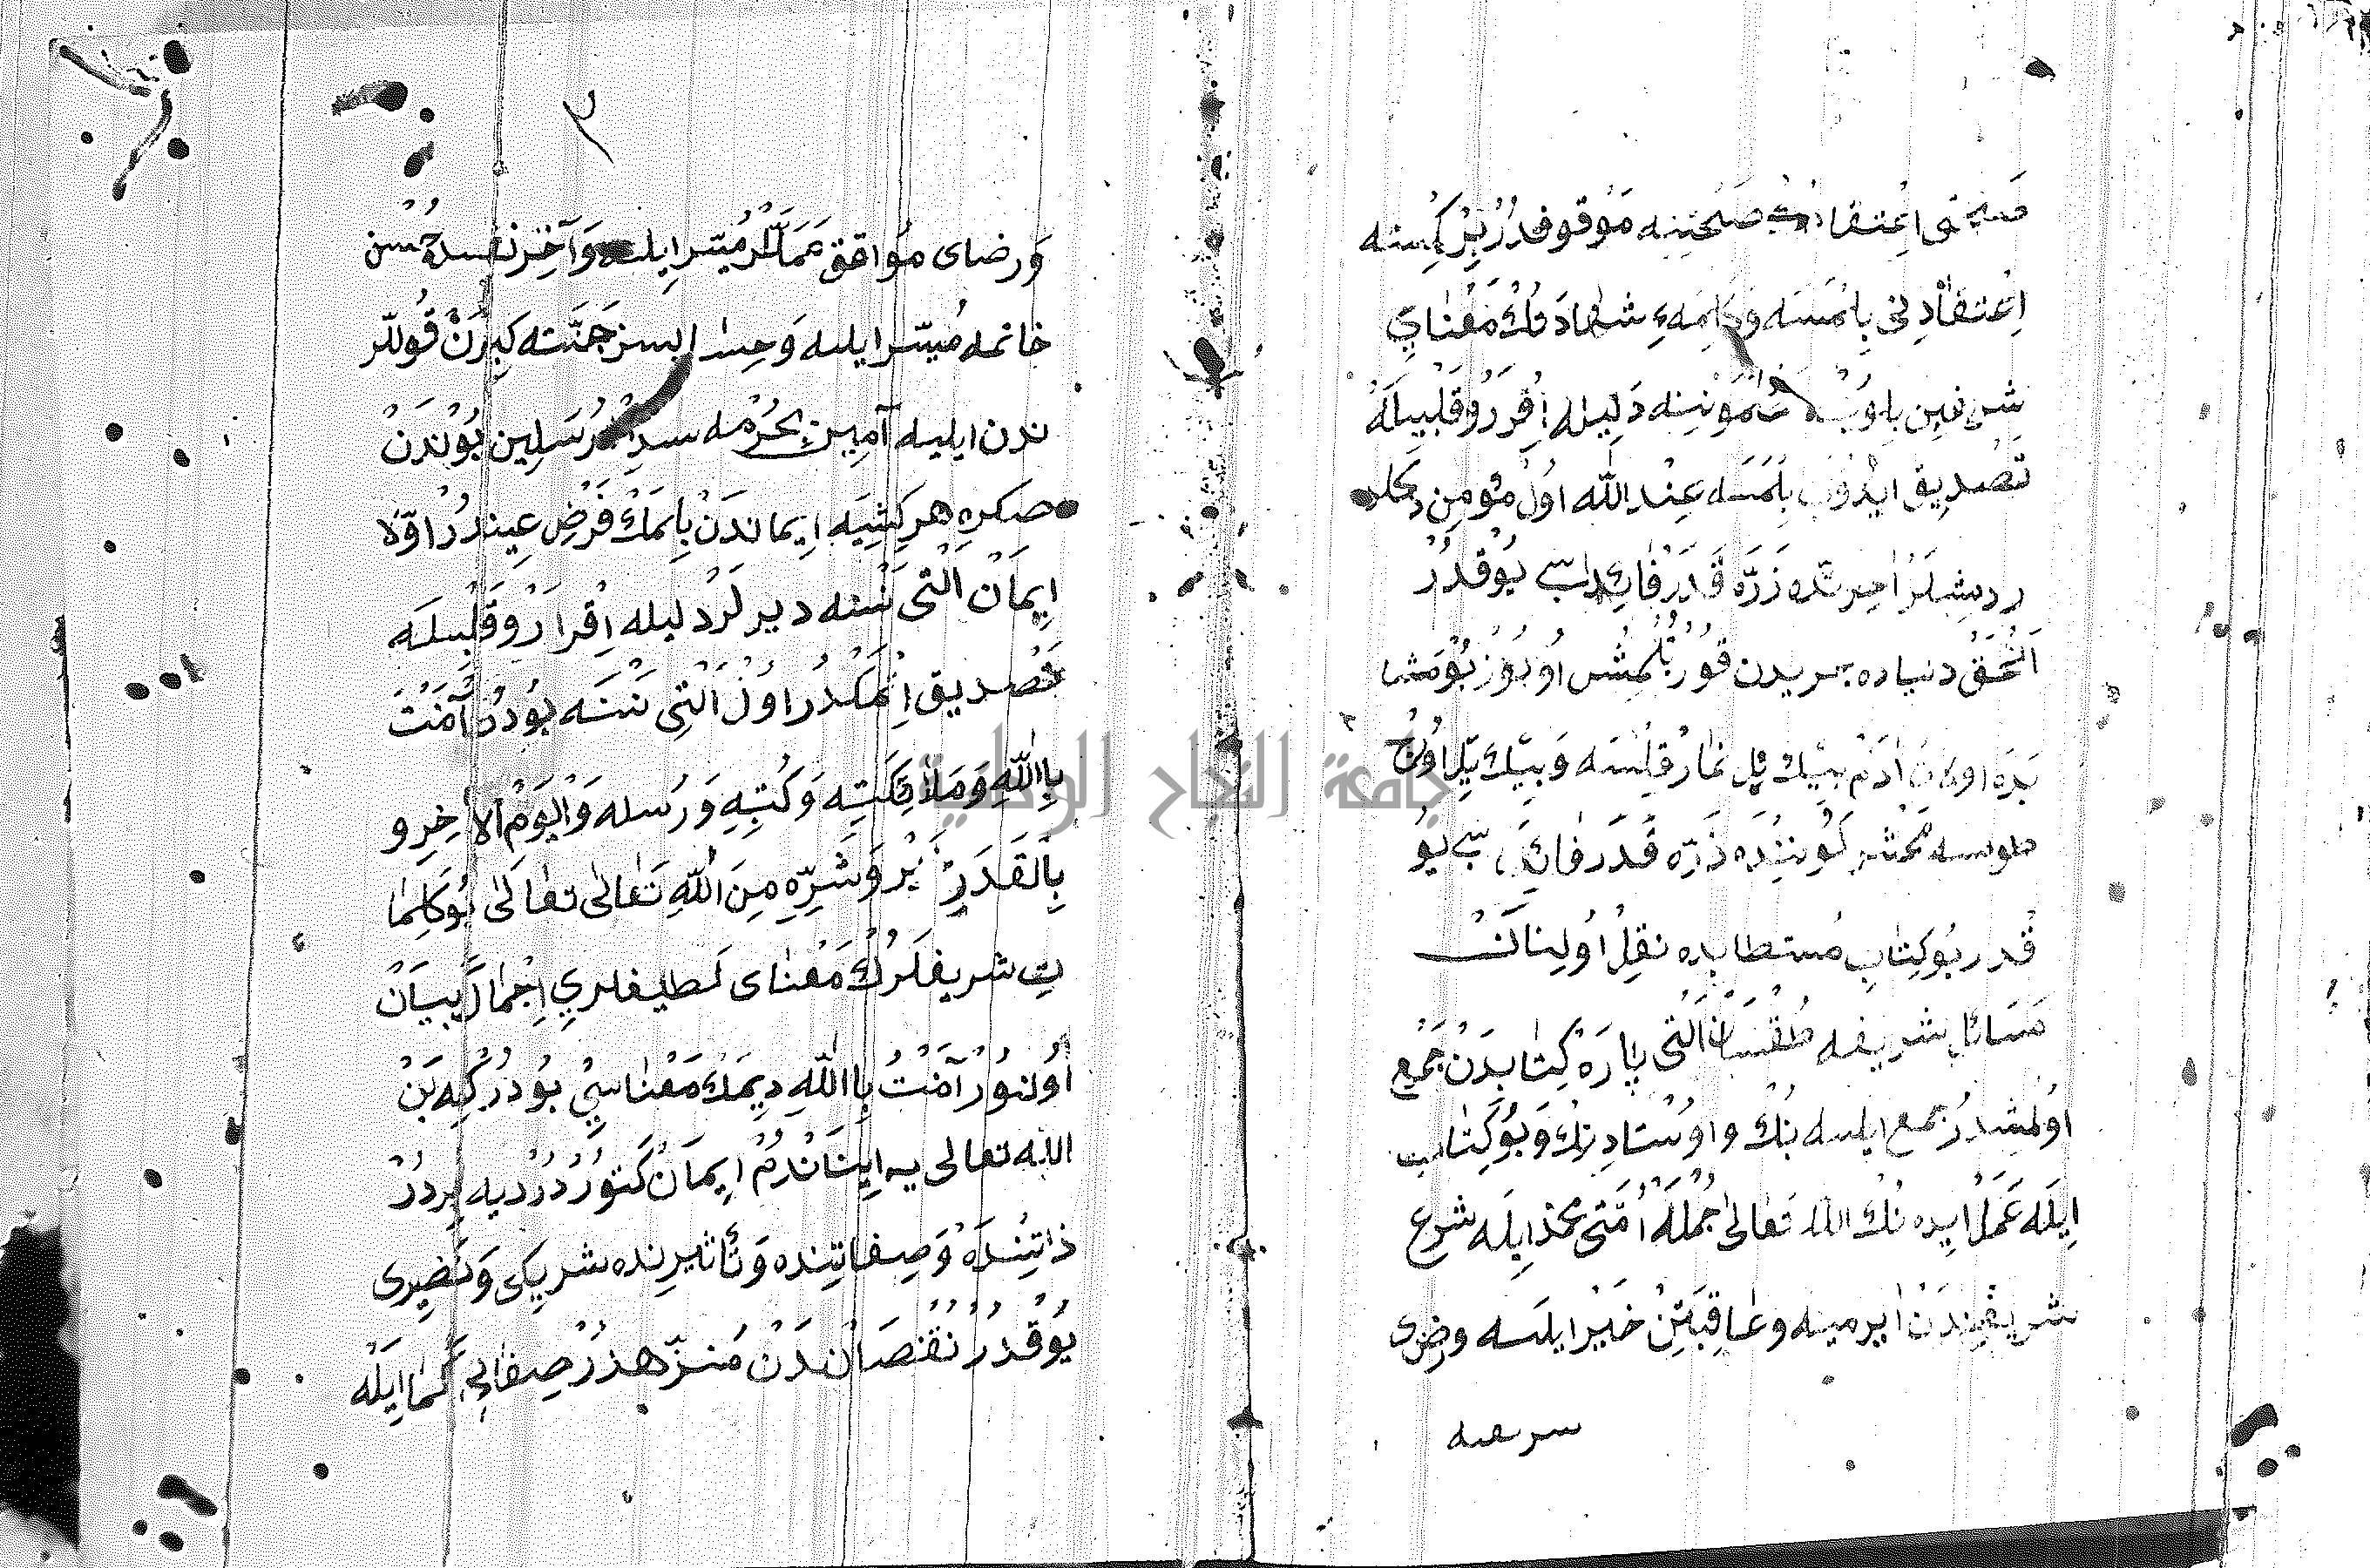 صحتى اعتقادك صحتنه موقوفدر بر كسنه
اعتقادنى بلمسه وكلمهء شهادتك معناي
شريفين بلوب مضموننه دليله اقرار و قلبيله
تصديق ايدوب بلمسه عند الله اول مؤمن دكلد
ر دمشلر آخرتده ذره قدر فائدسي يوقدر
الحق دنياده بريدن قورتلمش اوبوز بومشا
بده اولان ادم بيك يل نماز قلسه وبيك يل اوروج
طوسه محشر كوننده ذره قدر فائدسي يو
قدر بو كتاب مستطابده نقل اولينان
مسائل شريفه طقسان التى پاره كتابدن جمع
اولمشدر جمع ايلسه نك و اوستادنك و بو كتاب
ايله عمل ايده نك الله تعالى جمله امتى محمد ايله شرع
شريفندن ايرميه و عاقبتن خير ايلسه ورضى
سرعه
٣
ورضاى موافق عمللر ميسر ايله وآخر نفسده حسن
خاتمه ميسر ايليه وحسابسز جنته كيرن قوللر
ندن ايليه آمين بحرمه سيد المرسلين بوندن
صكره هر كشيه ايماندن بلمك فرض عيندر اولا
ايمان التى ننسنه دير لر دليله اقرار و قلبيله
تصديق اتمكدر اول التى ننسنه بودر آمنت
باالله وملائكته وكتبه ورسله واليوم الاخر و
بالقدر خير وشره من الله تعالى تعالى بو كلما
ت شريفلرك معناى لطيفلري اجمالا بيان
اولنور آمنت باالله ديمك معناسي بودر كه بن
الله تعالى يه ايناندم ايمان كتوردرديه بردر
ذاتنده وصفاتنده وتأثيرنده شريكى ونضيرى
يوقدر نقصاندن منزهدر صفاتى كما ايله
جامعة النجاح الوطنية